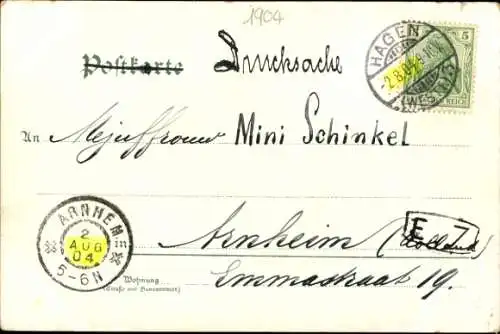 1904
Postkarte Drucksache
HAGEN
-2.8.04.
(WESTF.)
5
REICH
An Mejuffrouw Mini Schinkel
ARNHEM
2
AUG
04
5-6N
E 7
Arnheim (Holland)
Wohnung
(Straße und Hausnummer)
Emmastraat 19.